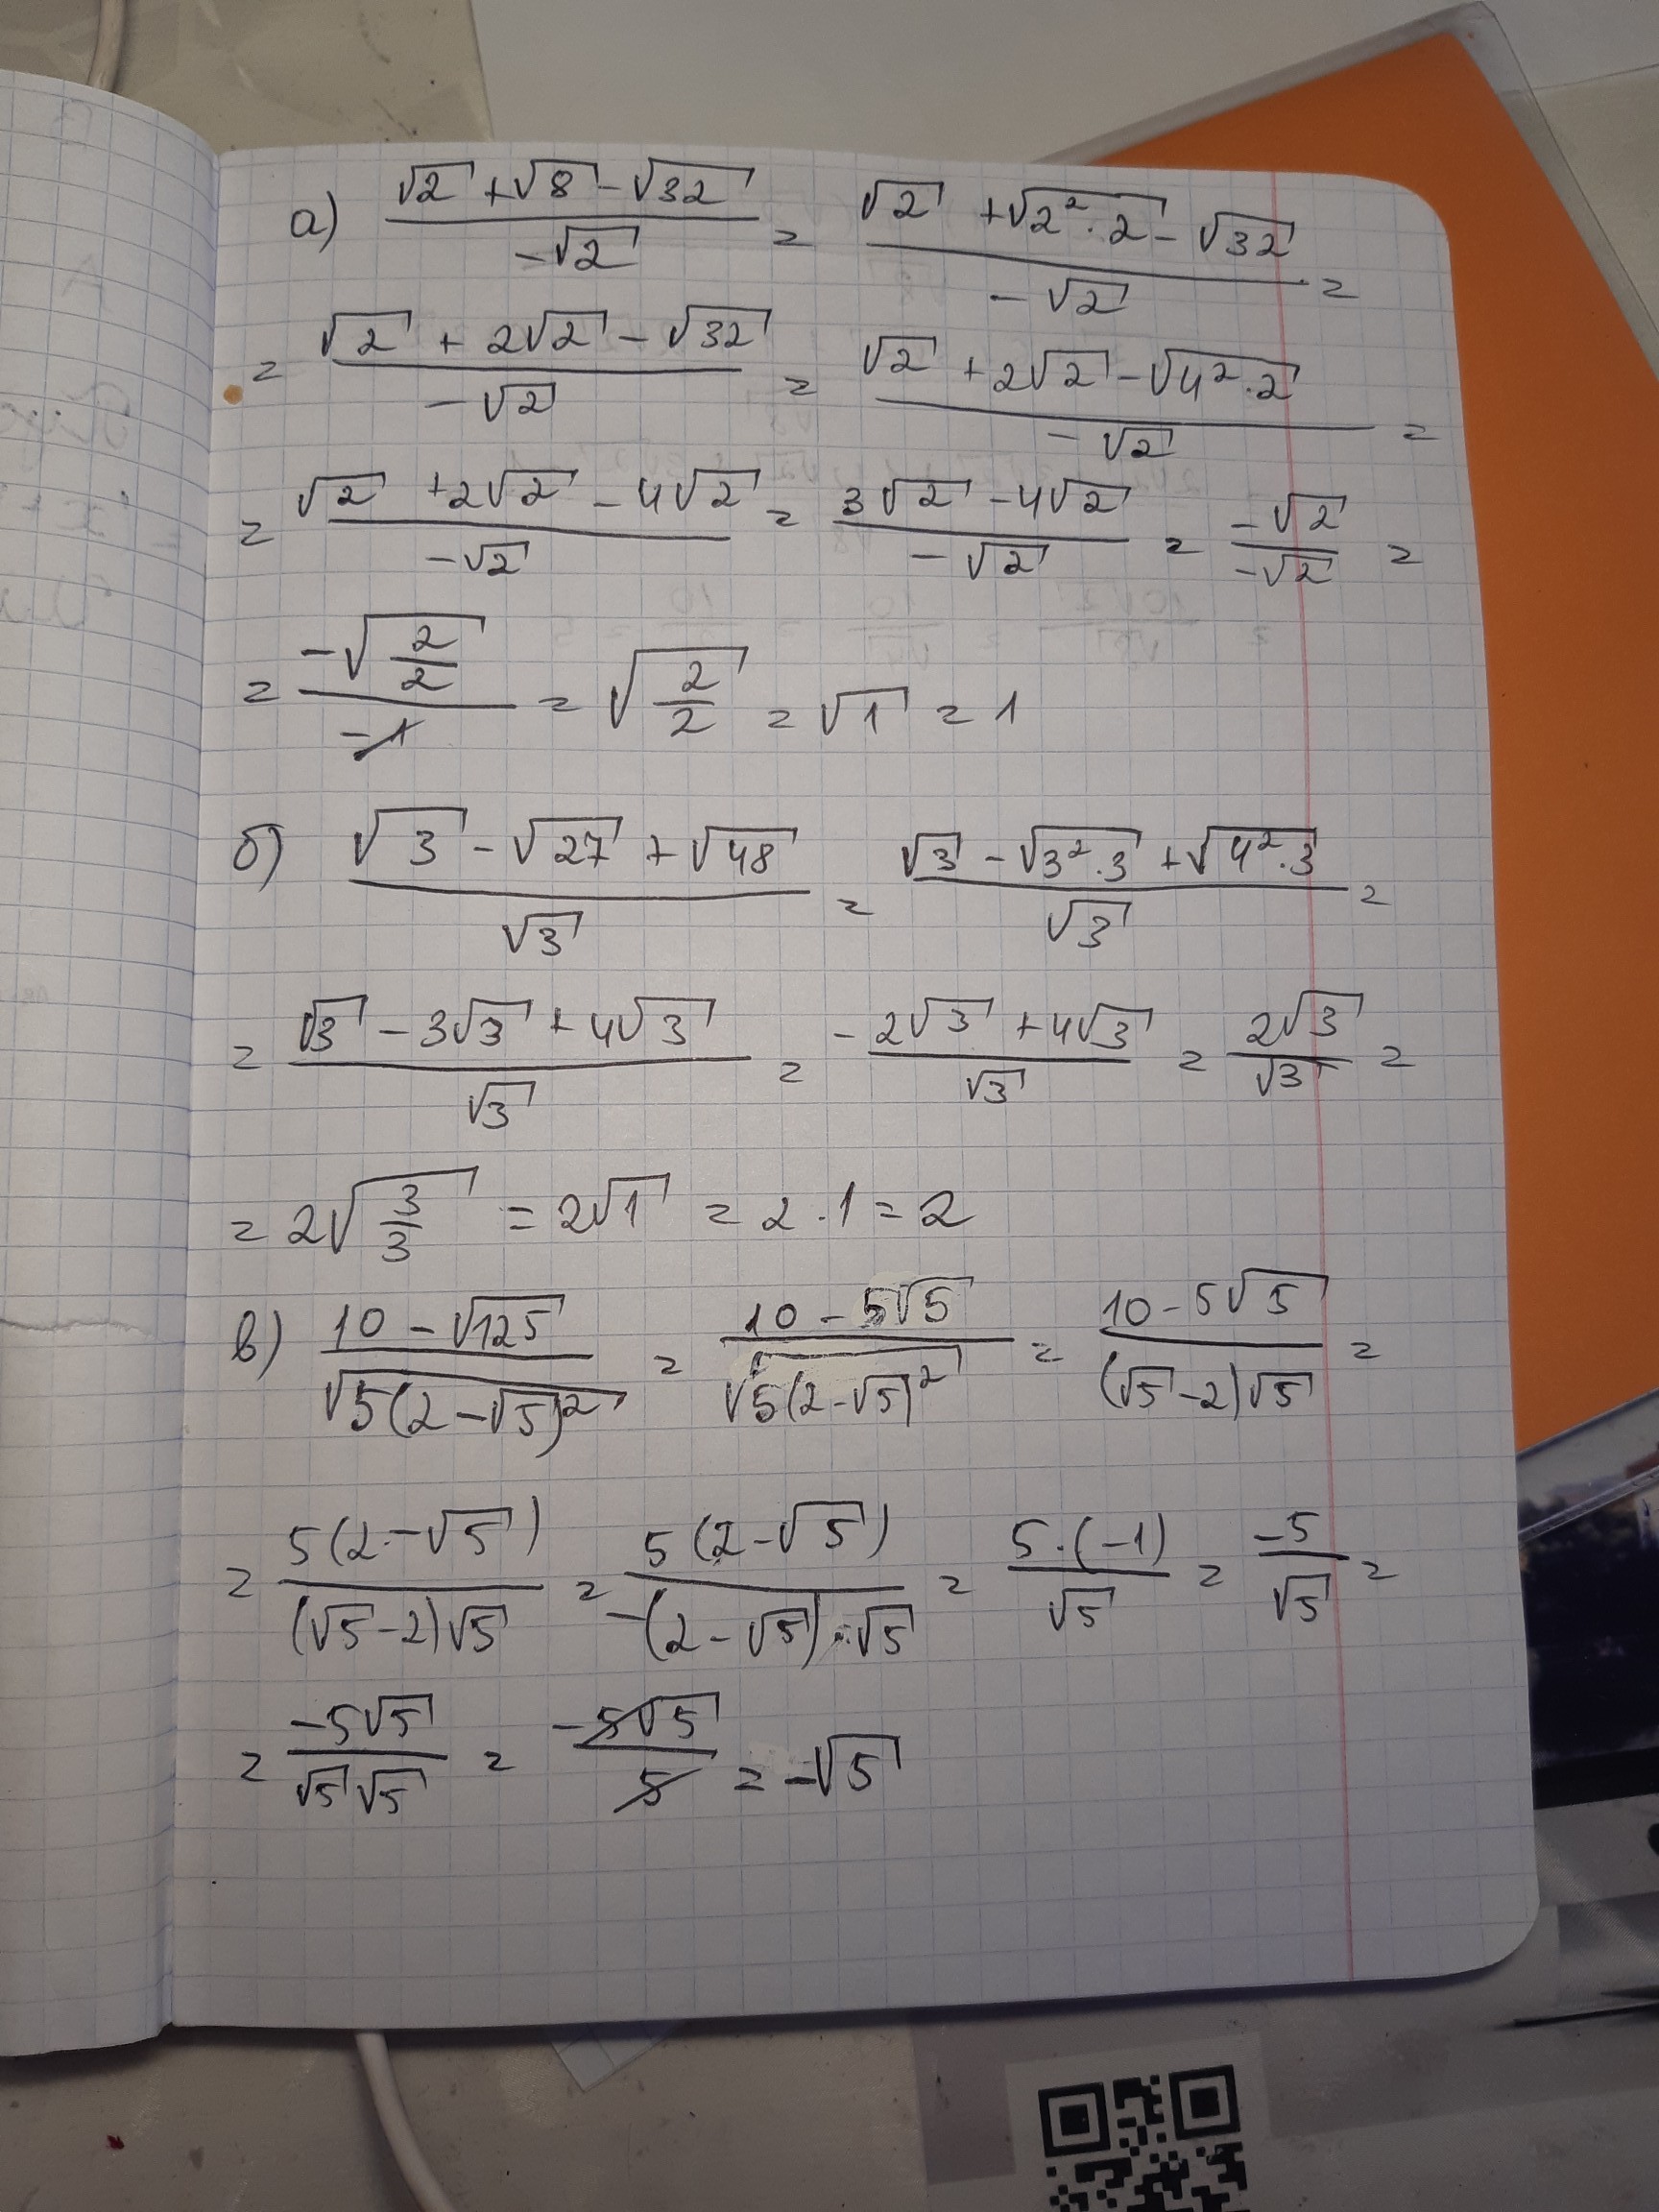 а) (√2 + √8 - √32)/(-√2) = (√2 + √(2²·2) - √32)/(-√2) =
= (√2 + 2√2 - √32)/(-√2) = (√2 + 2√2 - √(4²·2))/(-√2) =
= (√2 + 2√2 - 4√2)/(-√2) = (3√2 - 4√2)/(-√2) = (-√2)/(-√2) =
= (-√(2/2))/(-1) = √(2/2) = √1 = 1
б) (√3 - √27 + √48)/√3 = (√3 - √(3²·3) + √(4²·3))/√3 =
= (√3 - 3√3 + 4√3)/√3 = (-2√3 + 4√3)/√3 = 2√3/√3 =
= 2√(3/3) = 2√1 = 2·1 = 2
в) (10 - √125)/√(5(2-√5)²) = (10 - 5√5)/√(5(2-√5)²) = (10 - 5√5)/((√5-2)√5) =
= 5(2-√5)/((√5-2)√5) = 5(2-√5)/(-(2-√5)·√5) = 5·(-1)/√5 = -5/√5 =
= -5√5/(√5√5) = -5√5/5 = -√5